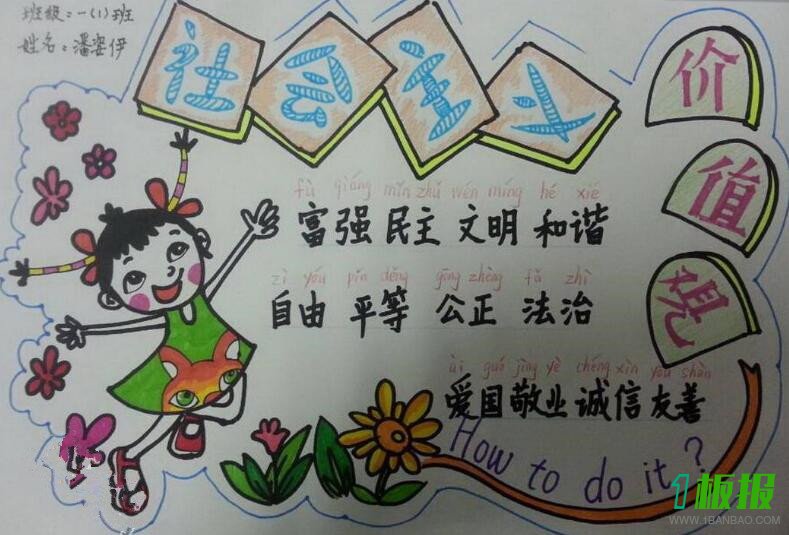 班级：一(1)班
姓名：潘姿伊
社会主义
价值观
fù qiáng mín zhǔ wén míng hé xié
富强 民主 文明 和谐
zì yóu pín děng gōng zhèng fǎ zhì
自由 平等 公正 法治
ài guó jìng yè chéng xìn yǒu shàn
爱国 敬业 诚信 友善
How to do it?
1板报
WWW.1BANBAO.COM